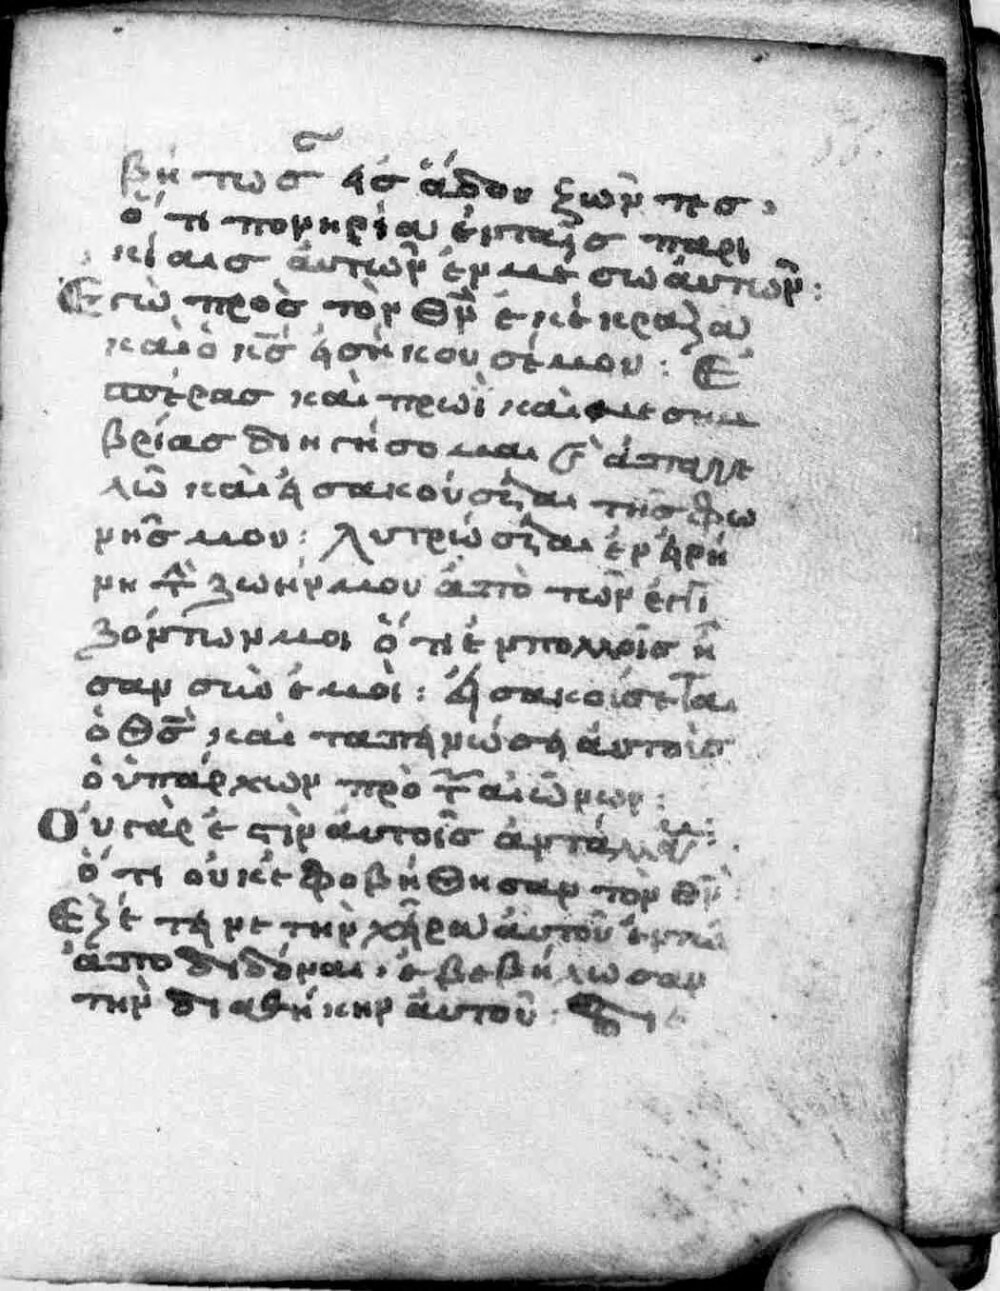 βήτωσ̑αν εἰς ἅδου ζῶντες,
ὅτι πονηρία ἐνταῖς παρι
κίαις ἀυτῶν ἐν μέσω ἀυτῶν:
Εγὼ πρὸς τὸν Θν̅ ἐκέκραξα
καὶ ὁ κς̅ εἰσήκουσέ μου: Ἑ
σπέρας καὶ πρωῒ καὶ μεσημ
βρίας διηγήσομαι καὶ ἀπαγγε
λῶ καὶ εἰσακούσεται τῆς φω
νῆς μου: λυτρώσεται ἐν εἰρή
νη τὴν ζωήν μου ἀπὸ τῶν ἐγγι
ζόντων μοι ὅτι ἐν πολλοῖς ἦ
σαν σὺν ἐμοὶ: Εἰσακοίσεται
ὁ Θς̅ καὶ ταπεινώσει ἀυτοὶς
ὁ ὑπάρχων πρὸ τῶν αἰώνων:
Οὐ γάρ ἐστιν ἀυτοῖς ἀντάλλαγμα:
ὅτι ὀυκ ἐφοβήθησαν τὸν Θν̅:
Εξέτεινε τὴν χεῖρα ἀυτοῦ ἐν τῶ
ἀποδιδόναι, ἐβεβήλωσαν
τὴν διαθήκην ἀυτοῦ: δι